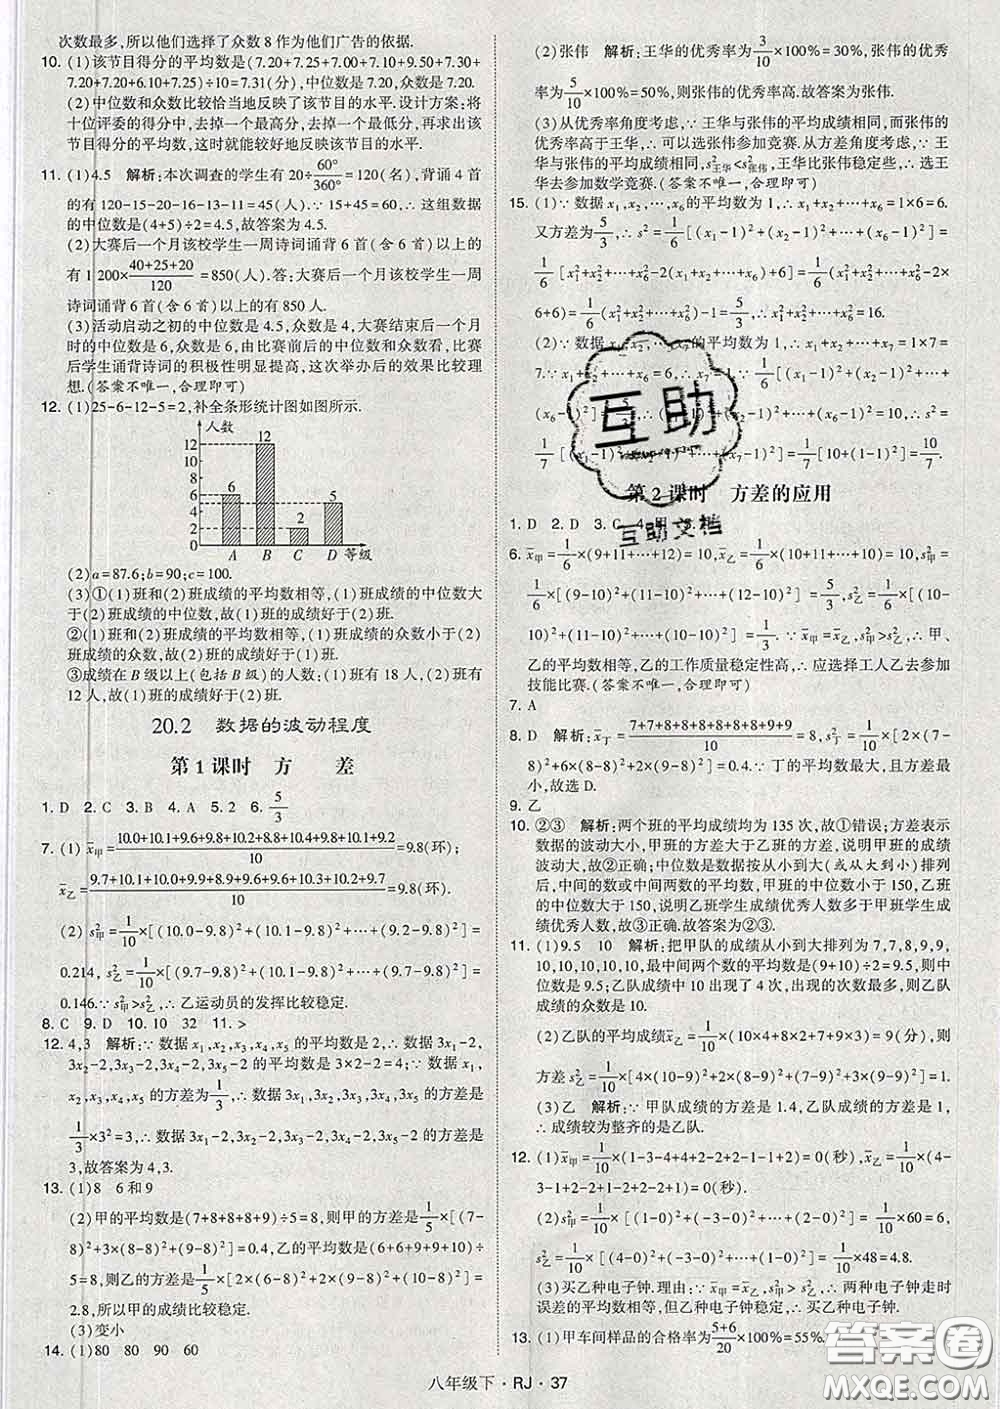 次数最多,所以他们选择了众数 8 作为他们广告的依据.
10. (1)该节目得分的平均数是(7.20+7.25+7.00+7.10+9.50+7.30+
7.20+7.20+6.10+7.25)÷10=7.31(分),中位数是 7.20,众数是 7.20.
(2)中位数和众数比较恰当地反映了该节目的水平.设计方案:将
十位评委的得分中,去掉一个最高分,去掉一个最低分,再求出该
节目得分的平均数,这时就能较好地反映出该节目的水平.
11. (1)4.5 解析:本次调查的学生有 20÷60°/360°=120(名),背诵 4 首
的有 120-15-20-16-13-11=45(人).∵15+45=60,∴这组数据
的中位数是(4+5)÷2=4.5,故答案为 4.5.
(2)大赛后一个月该校学生一周诗词诵背 6 首(含 6 首)以上的有
1 200×(40+25+20)/120=850(人).答:大赛后一个月该校学生一周
诗词诵背 6 首(含 6 首)以上的有 850 人.
(3)活动启动之初的中位数是 4.5,众数是 4,大赛结束后一个月
时的中位数是 6,众数是 6,由比赛前后的中位数和众数看,比
赛后学生诵背诗词的积极性明显提高,这次举办后的效果比较理
想.(答案不唯一,合理即可)
12. (1)25-6-12-5=2,补全条形统计图如图所示.
人数
12
10
8
6
4
2
0
6
12
2
5
A B C D 等级
(2)a=87.6;b=90;c=100.
(3)①(1)班和(2)班成绩的平均数相等,(1)班成绩的中位数大
于(2)班成绩的中位数,故(1)班的成绩好于(2)班.
②(1)班和(2)班成绩的平均数相等,(1)班成绩的众数小于(2)班
成绩的众数,故(2)班的成绩好于(1)班.
③成绩在 B 级以上(包括 B 级)的人数:(1)班有 18 人,(2)班有
12 人,故(1)班的成绩好于(2)班.
20.2 数据的波动程度
第 1 课时 方 差
1. D 2. C 3. B 4. A 5. 2 6. 5/3
7. (1) x̄甲=(10.0+10.1+9.6+9.8+10.2+8.8+10.4+9.8+10.1+9.2)/10=9.8(环);
x̄乙=(9.7+10.1+10.0+9.9+8.9+9.6+9.6+10.3+10.2+9.7)/10=9.8(环).
(2) s²甲=1/10×[(10.0-9.8)²+(10.1-9.8)²+…+(9.2-9.8)²]=
0.214,s²乙=1/10×[(9.7-9.8)²+(10.1-9.8)²+…+(9.7-9.8)²]=
0.146.∵s²甲>s²乙,∴乙运动员的发挥比较稳定.
8. C 9. D 10. 10 32 11. >
12. 4,3 解析:∵数据 x₁,x₂,x₃,x₄,x₅的平均数是 2,∴数据 3x₁-2,
3x₂-2,3x₃-2,3x₄-2,3x₅-2 的平均数是 3×2-2=4;∵数据 x₁,
x₂,x₃,x₄,x₅的方差为1/3,∴数据 3x₁,3x₂,3x₃,3x₄,3x₅的方差是
1/3×3²=3,∴数据 3x₁-2,3x₂-2,3x₃-2,3x₄-2,3x₅-2 的方差是
3,故答案为 4,3.
13. (1)8 6 和 9
(2)甲的平均数是(7+8+8+8+9)÷5=8,则甲的方差是1/5×[(7-
8)²+3×(8-8)²+(9-8)²]=0.4,乙的平均数是(6+6+9+9+10)÷
5=8,则乙的方差是1/5×[2×(6-8)²+2×(9-8)²+(10-8)²]=
2.8,所以甲的成绩比较稳定.
(3)变小
14. (1)80 80 90 60
(2)张伟 解析:王华的优秀率为3/10×100%=30%,张伟的优秀
率为5/10×100%=50%,则张伟的优秀率高.故答案为张伟.
(3)从优秀率角度考虑,∵王华与张伟的平均成绩相同,而张伟的
优秀率高于王华,∴可以选张伟参加竞赛.从方差角度考虑,∵王
华与张伟的平均成绩相同,s²王华<s²张伟,王华比张伟稳定些,∴选王
华去参加数学竞赛.(答案不唯一,合理即可)
15. (1)∵数据 x₁,x₂,…,x₆的平均数为 1,∴x₁+x₂+…+x₆=1×6=6.
又方差为5/3,∴s²=1/6[(x₁-1)²+(x₂-1)²+…+(x₆-1)²]=
1/6[x₁²+x₂²+…+x₆²-2(x₁+x₂+…+x₆)+6]=1/6(x₁²+x₂²+…+x₆²-2×
6+6)=1/6(x₁²+x₂²+…+x₆²)-1=5/3,∴x₁²+x₂²+…+x₆²=16.
(2)∵数据 x₁,x₂,…,x₇的平均数为 1,∴x₁+x₂+…+x₇=1×7=
7.∵x₁+x₂+…+x₆=6,∴x₇=1.∵1/6[(x₁-1)²+(x₂-1)²+…+
(x₆-1)²]=5/3,∴(x₁-1)²+(x₂-1)²+…+(x₆-1)²=10,∴s²=
1/7[(x₁-1)²+(x₂-1)²+…+(x₇-1)²]=1/7[10+(1-1)²]=10/7.
互助
互助文档
第 2 课时 方差的应用
1. D 2. D 3. C 4. 甲
6. x̄甲=1/6×(9+11+…+12)=10,x̄乙=1/6×(10+11+…+10)=10,s²甲=
1/6×[(9-10)²+(11-10)²+…+(12-10)²]=2,s²乙=1/6×[(10-
10)²+(11-10)²+…+(10-10)²]=1/3.∵x̄甲=x̄乙,s²甲>s²乙,∴甲、
乙的平均数相等,乙的工作质量稳定性高,∴应选择工人乙去参加
技能比赛.(答案不唯一,合理即可)
7. A
8. D 解析:x̄丁=(7+7+8+8+8+8+8+8+9+9)/10=8,s²丁=1/10×[2×(7-
8)²+6×(8-8)²+2×(9-8)²]=0.4.∵丁的平均数最大,且方差最
小,故选 D.
9. 乙
10. ②③ 解析:两个班的平均成绩均为 135 次,故①错误;方差表示
数据的波动大小,甲班的方差大于乙班的方差,说明甲班的成绩
波动大,故②正确;中位数是数据按从小到大(或从大到小)排列
后,中间的数或中间两数的平均数,甲班的中位数小于 150,乙班
的中位数大于 150,说明乙班学生成绩优秀人数多于甲班学生成
绩优秀人数,故③正确.故答案为②③.
11. (1)9.5 10 解析:把甲队的成绩从小到大排列为 7,7,8,9,9,
10,10,10,10,10,最中间两个数的平均数是(9+10)÷2=9.5,则中
位数是 9.5;乙队成绩中 10 出现了 4 次,出现的次数最多,则乙队
成绩的众数是 10.
(2)乙队的平均成绩x̄乙=1/10×(10×4+8×2+7+9×3)=9(分),则
方差s²乙=1/10×[4×(10-9)²+2×(8-9)²+(7-9)²+3×(9-9)²]=1.
(3)乙 解析:∵甲队成绩的方差是 1.4,乙队成绩的方差是 1,
∴成绩较为整齐的是乙队.
12. (1)x̄甲=1/10×(1-3-4+4+2+…+2)=0(秒),x̄乙=1/10×(4-
3-1+2-2+…+1)=0(秒).
(2)s²甲=1/10×[(1-0)²+(-3-0)²+…+(2-0)²]=1/10×60=6,
s²乙=1/10×[(4-0)²+(-3-0)²+…+(1-0)²]=1/10×48=4.8.
(3)买乙种电子钟.理由:∵x̄甲=x̄乙,s²甲>s²乙,∴两种电子钟走时
误差的平均数相等,但乙种电子钟稳定性更好,∴买乙种电子钟.
13. (1)甲车间样品的合格率为(5+6)/20×100%=55%.
八年级下·RJ·37
答案圈
MXQE.COM